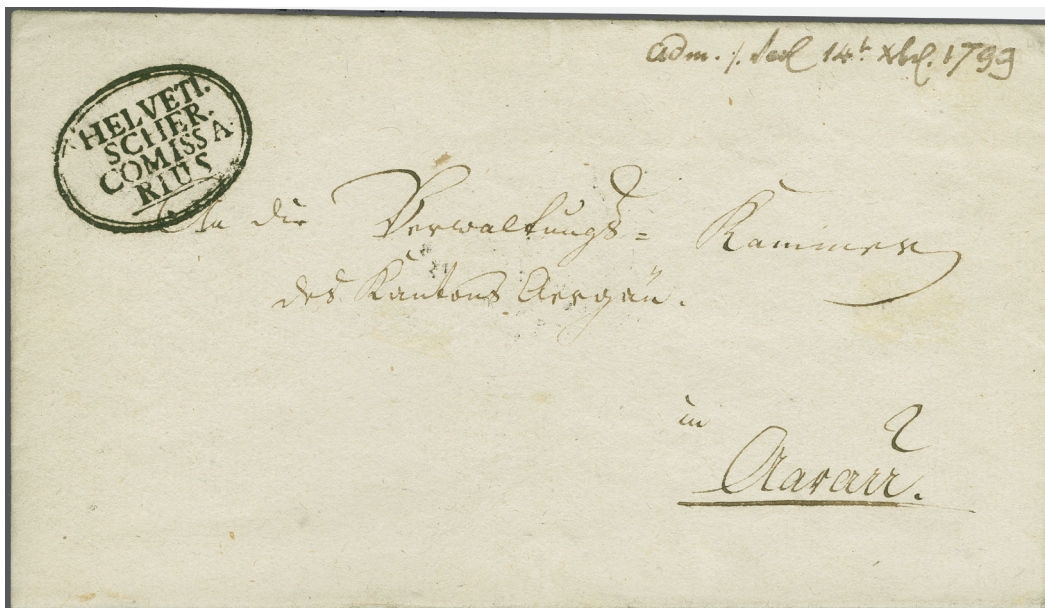 adm. /. 14t. Xbr. 1799
HELVETI.
SCHER.
COMISSA
RIUS
An die Verwaltungs= Kammer
des Kantons Aergäu.
in
Aarau.